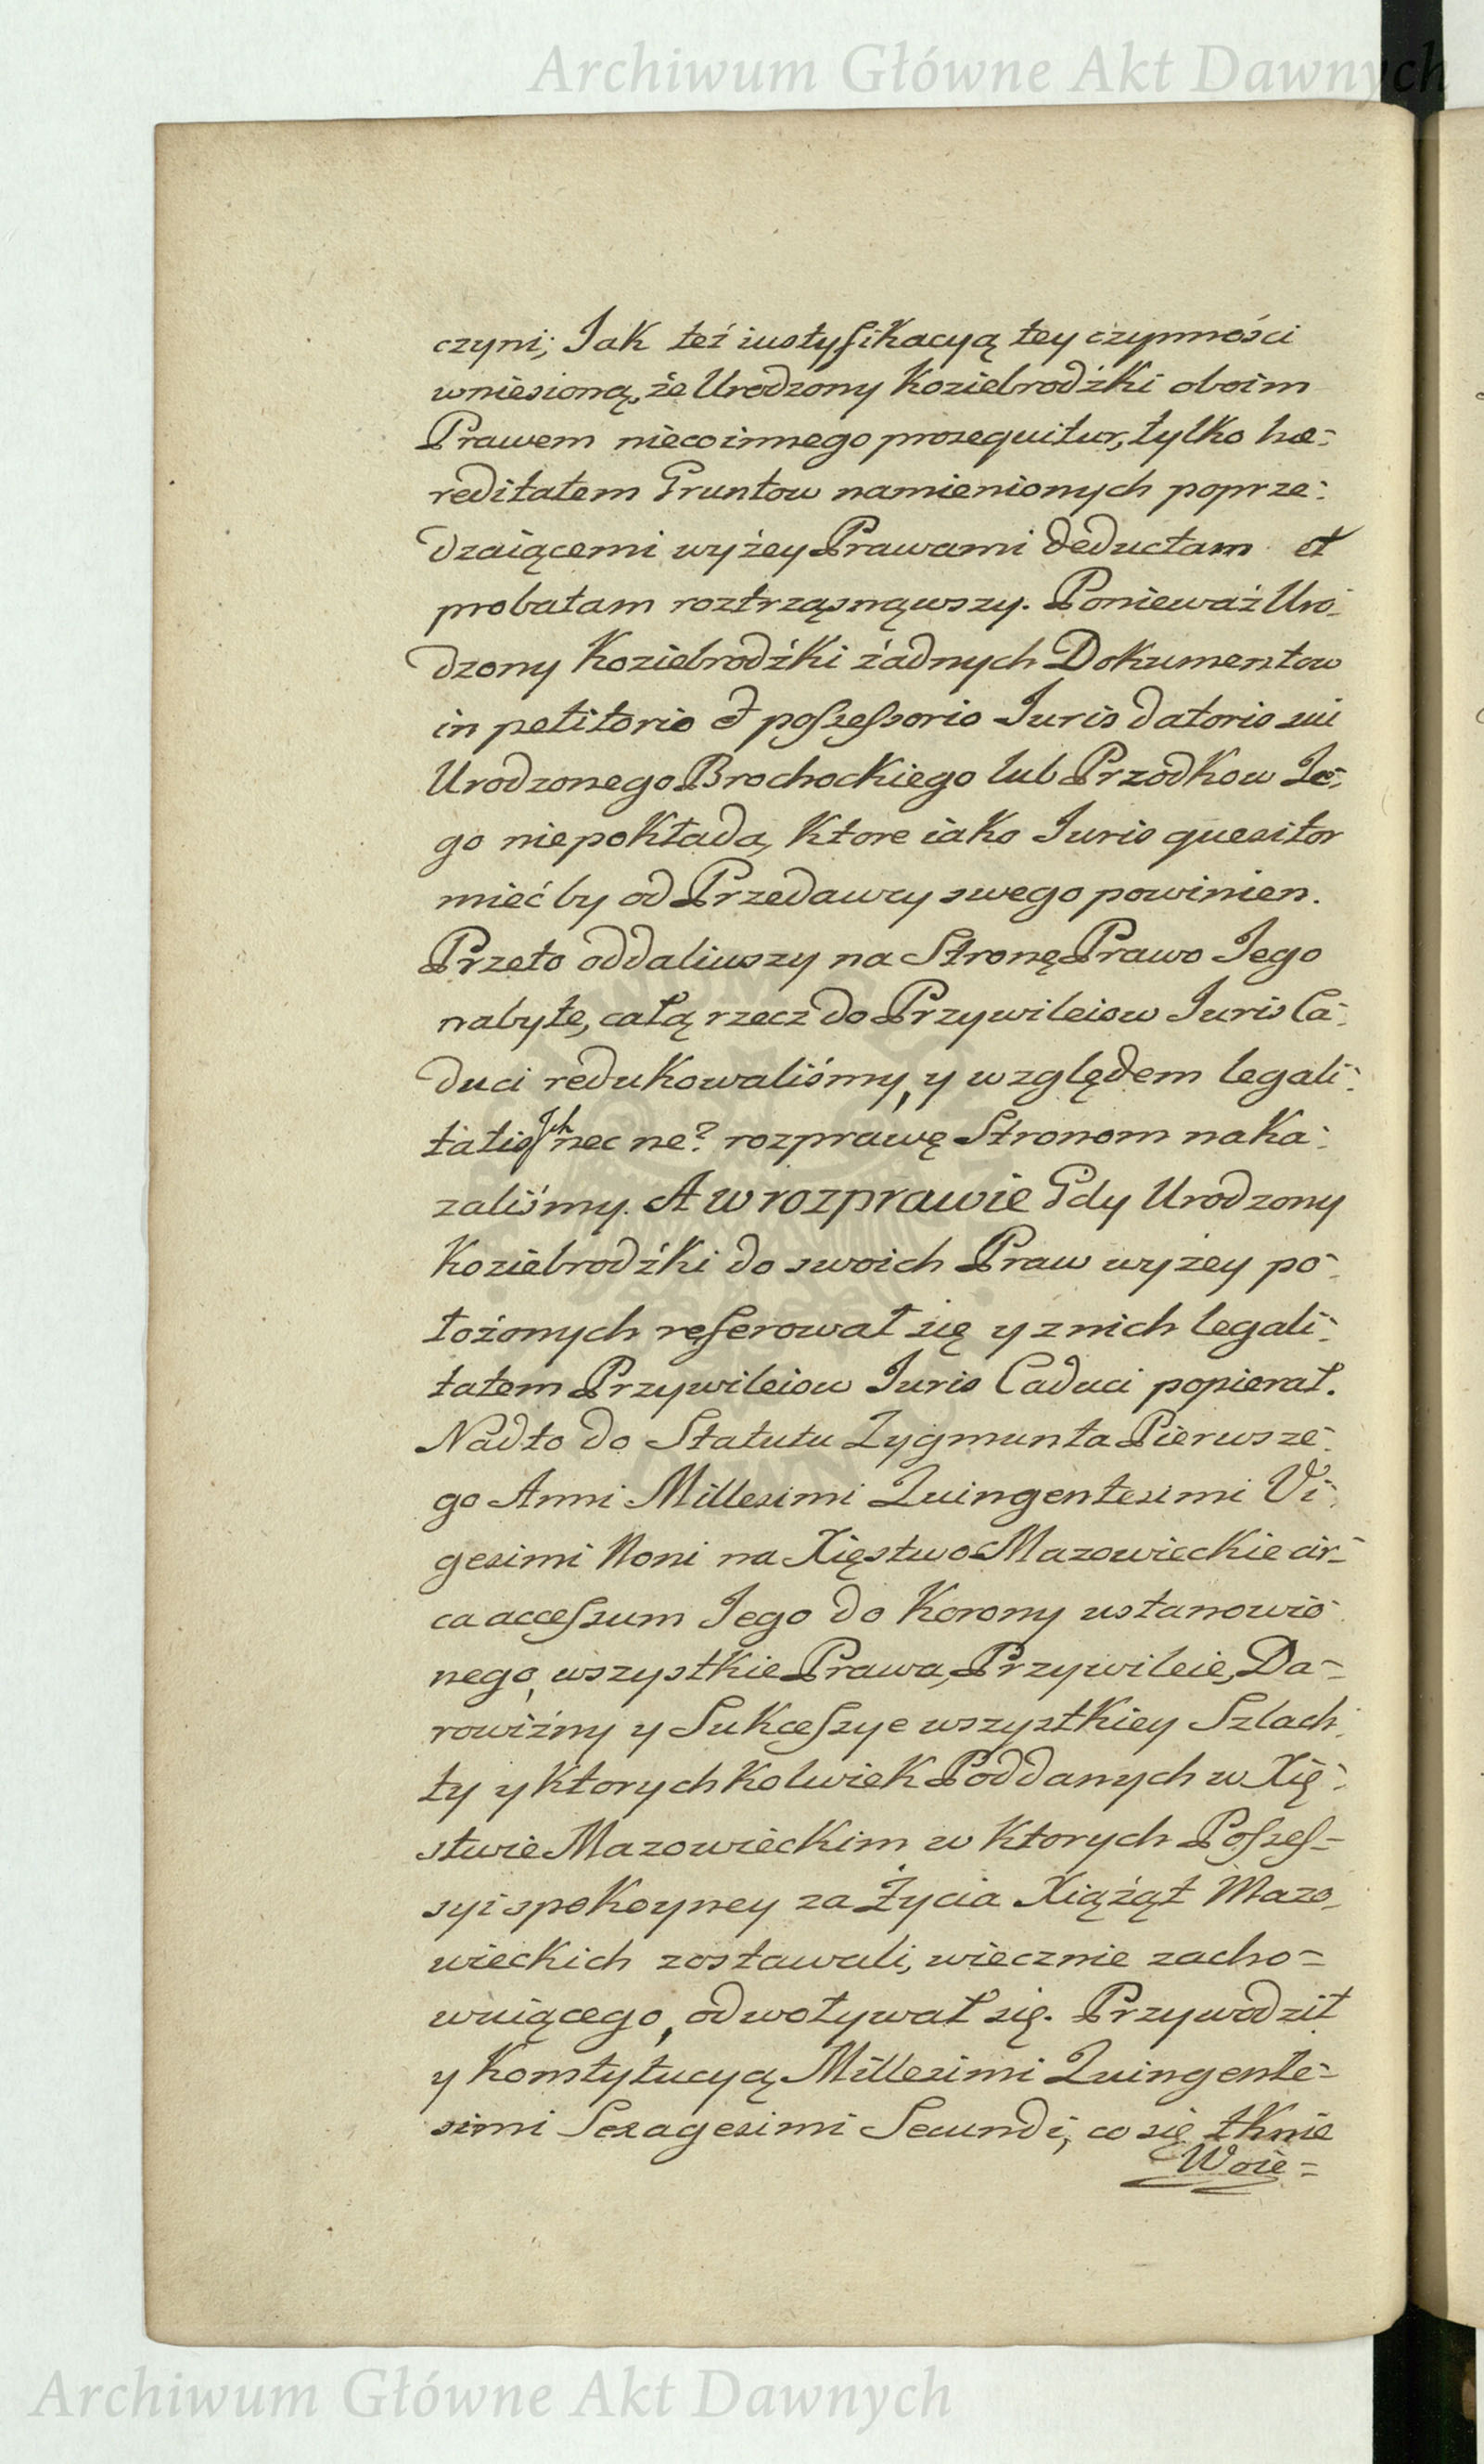 Archiwum Główne Akt Dawnych
czyni; Jak też iustyfikacyą tey czynności
wniesioną, że Urodzony Koziebrodźki oboim
Prawem nieco innego prosequitur, tylko hæ-
reditatem Gruntow namienionych poprze-
dzaiącemi wyżey Prawami deductam et
probatam roztrząsnąwszy. Ponieważ Uro-
dzony Koziebrodźki żadnych Dokumentow
in petitorio et possessorio Juris datoris sui
Urodzonego Brochockiego lub Przodkow Je-
go niepokłada, ktore iako Juris quesitor
mieć by od Przedawcy swego powinien.
Przeto oddaliwszy na Stronę Prawo Jego
nabyte, całą rzecz do Przywileiow Juris Ca-
duci redukowaliśmy, y względem legali-
tatis Ich nec ne? rozprawę Stronom naka-
zaliśmy. A w rozprawie Gdy Urodzony
Koziebrodźki do swoich Praw wyżey po-
łożonych referował się y z nich legali-
tatem Przywileiow Juris Caduci popierał.
Nadto do Statutu Zygmunta Pierwsze-
go Anni Millesimi Quingentesimi Vi-
gesimi Noni na Xięstwo Mazowieckie cir-
ca accessum Jego do Korony ustanowio-
nego, wszystkie Prawa, Przywileie, Da-
rowiźny y Sukcessye wszystkiey Szlach-
ty y ktorychkolwiek Poddanych w Xię-
stwie Mazowieckim w ktorych Posses-
syi spokoyney za Życia Xiążąt Mazo-
wieckich zostawali, wiecznie zacho-
wuiącego, odwoływał się. Przywodził
y Konstytucyą Millesimi Quingente-
simi Sexagesimi Secundi, co się tknie
Woie-
Archiwum Główne Akt Dawnych